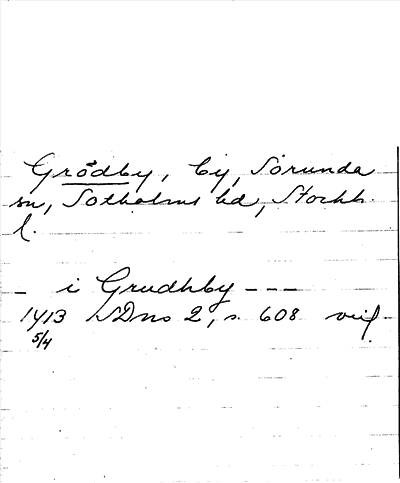 Grödby, by, Sorunda
sn, Sotholms hd, Stockh.
l.
- i Grudhby - - -
1413 SDns 2, s. 608
5/4